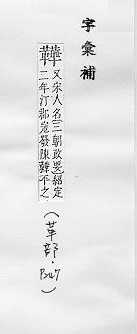 字彙補
鞾 又宋人名三朝政要紹定
二年汀邵寇發陳鞾平之
(革部·